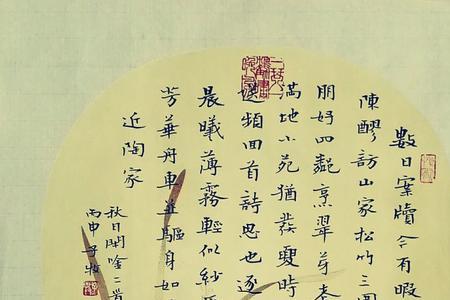 數日案牘今有暇
陳醪訪山家松竹三
朋好四甌烹翠芽
滿地小苑猶發夏時
頻回首詩思也逐
晨曦薄霧輕似紗
芳華舟車並驅身如
近陶家
秋日閑吟二首
丙申子牧